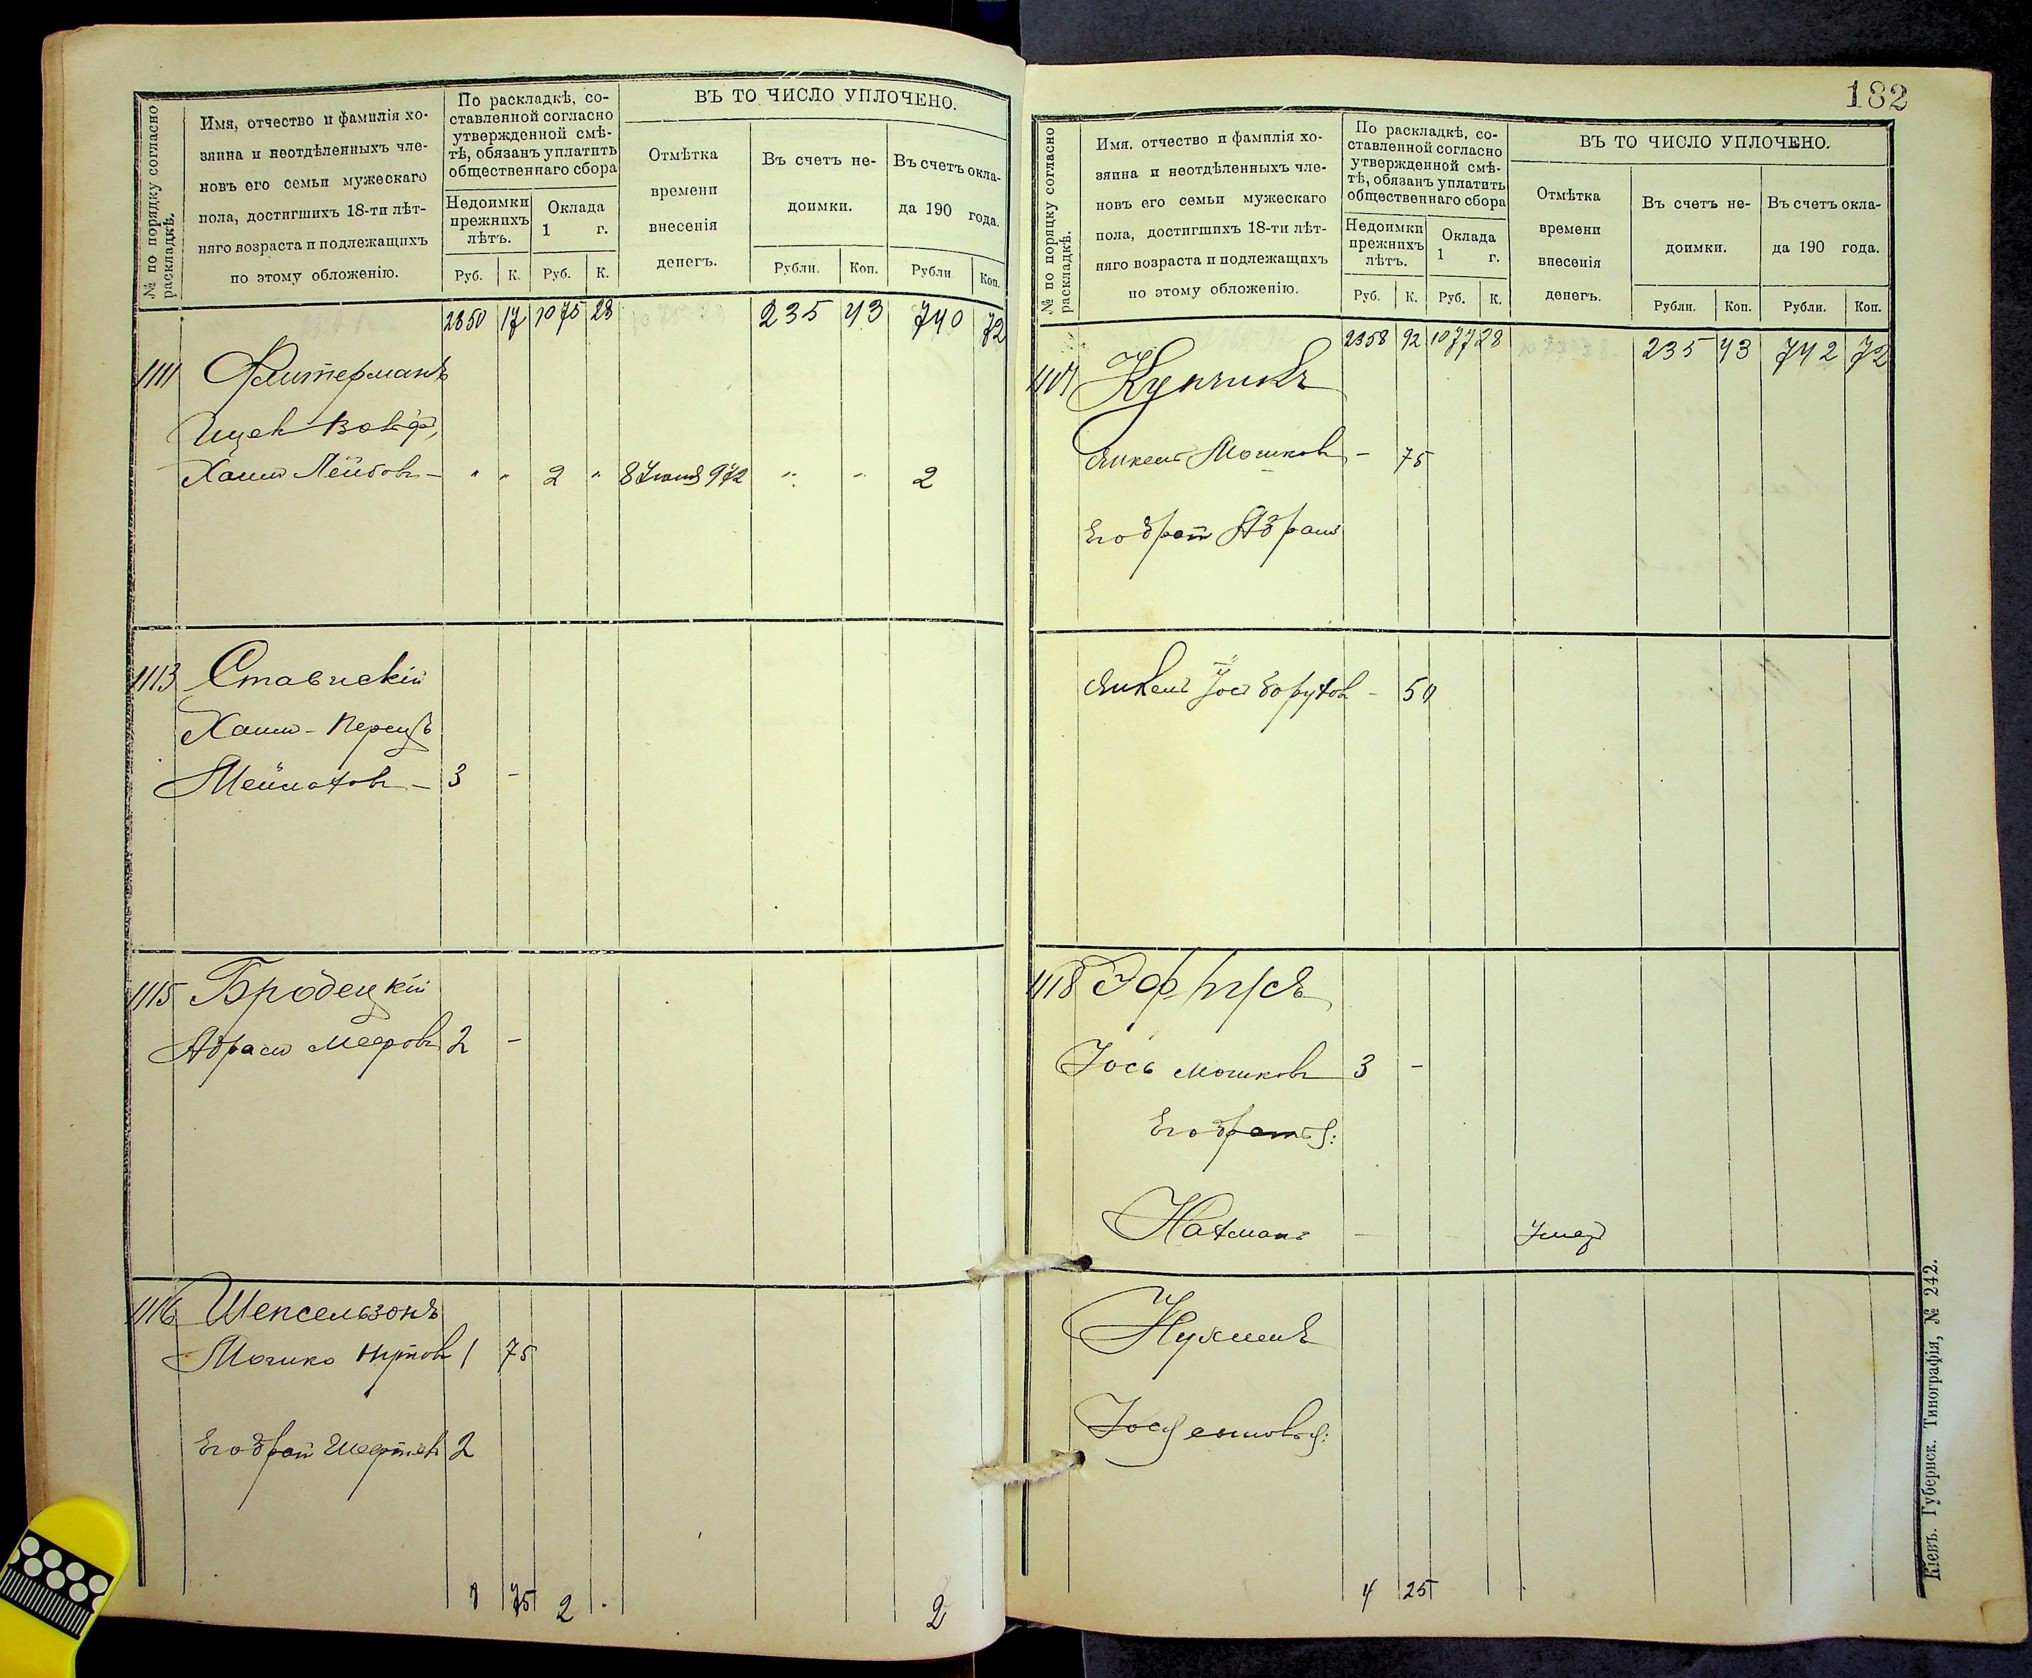 № по порядку согласно раскладкѣ.
Имя, отчество и фамилія хо-
зяина и неотдѣленныхъ чле-
новъ его семьи мужескаго
пола, достигшихъ 18-ти лѣт-
няго возраста и подлежащихъ
по этому обложенію.
По раскладкѣ, со-
ставленной согласно
утвержденной смѣ-
тѣ, обязанъ уплатить
общественнаго сбора
Недоимки
прежнихъ
лѣтъ.
Оклада
1 г.
Руб. К. Руб. К.
ВЪ ТО ЧИСЛО УПЛОЧЕНО.
Отмѣтка
времени
внесенія
денегъ.
Въ счетъ не-
доимки.
Рубли. Коп.
Въ счетъ окла-
да 190 года.
Рубли Коп.
2350 17 1075 28 235 43 740 72
1111 Флитерманъ
Ицек Вольф,
Хаим Лейбовъ - " " 2 " 8 Іюня 972 " " 2
1113 Ставискій
Хаим - Перецъ
3 -
1115 Бродецкій
Абрам Мееровъ 2 -
1116 Шепсельзонъ
Мошко 1 75
Его брат 2
75 2 . 2
182
№ по порядку согласно раскладкѣ.
Имя, отчество и фамилія хо-
зяина и неотдѣленныхъ чле-
новъ его семьи мужескаго
пола, достигшихъ 18-ти лѣт-
няго возраста и подлежащихъ
по этому обложенію.
По раскладкѣ, со-
ставленной согласно
утвержденной смѣ-
тѣ, обязанъ уплатить
общественнаго сбора
Недоимки
прежнихъ
лѣтъ.
Оклада
1 г.
Руб. К. Руб. К.
ВЪ ТО ЧИСЛО УПЛОЧЕНО.
Отмѣтка
времени
внесенія
денегъ.
Въ счетъ не-
доимки.
Рубли. Коп.
Въ счетъ окла-
да 190 года.
Рубли. Коп.
2358 92 1077 28 235 43 742 72
Купчикъ
Янкель Мошков - 75
Его брат Абрам
Янкель - 50
1118 Эфрусъ
Іось Мошковъ 3 -
Его братья:
Нахманъ - - Умеръ
Нухимъ
4 25
Кіевъ. Губернск. Типографія, № 242.